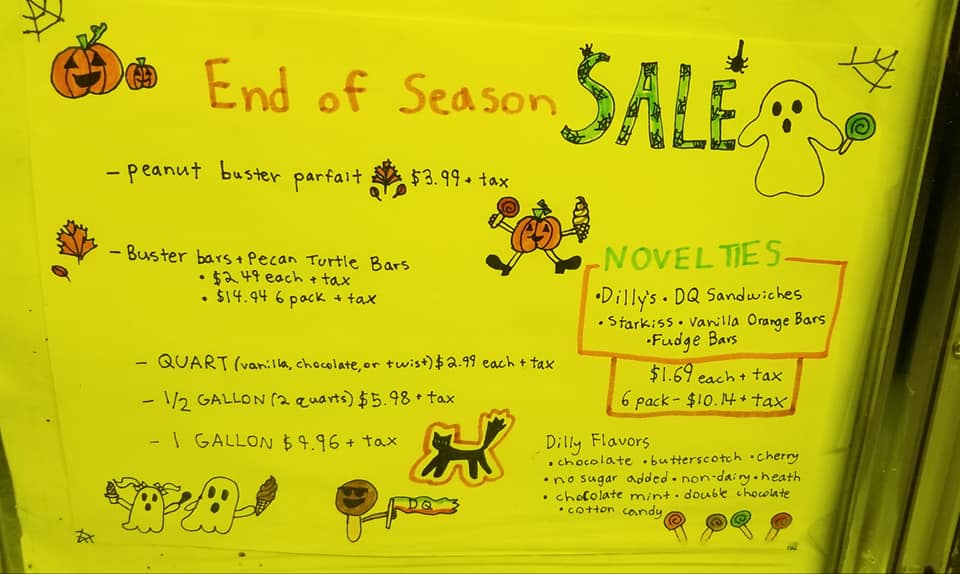 End of Season SALE
- peanut buster parfait $3.99 + tax
- Buster bars + Pecan Turtle Bars
• $2.49 each + tax
• $14.94 6 pack + tax
- QUART (vanilla, chocolate, or twist) $2.99 each + tax
- 1/2 GALLON (2 quarts) $5.98 + tax
- 1 GALLON $9.96 + tax
NOVELTIES
• Dilly's • DQ Sandwiches
• Starkiss • Vanilla Orange Bars
• Fudge Bars
$1.69 each + tax
6 pack - $10.14 + tax
Dilly Flavors
• chocolate • butterscotch • cherry
• no sugar added • non-dairy • heath
• chocolate mint • double chocolate
• cotton candy
DQ